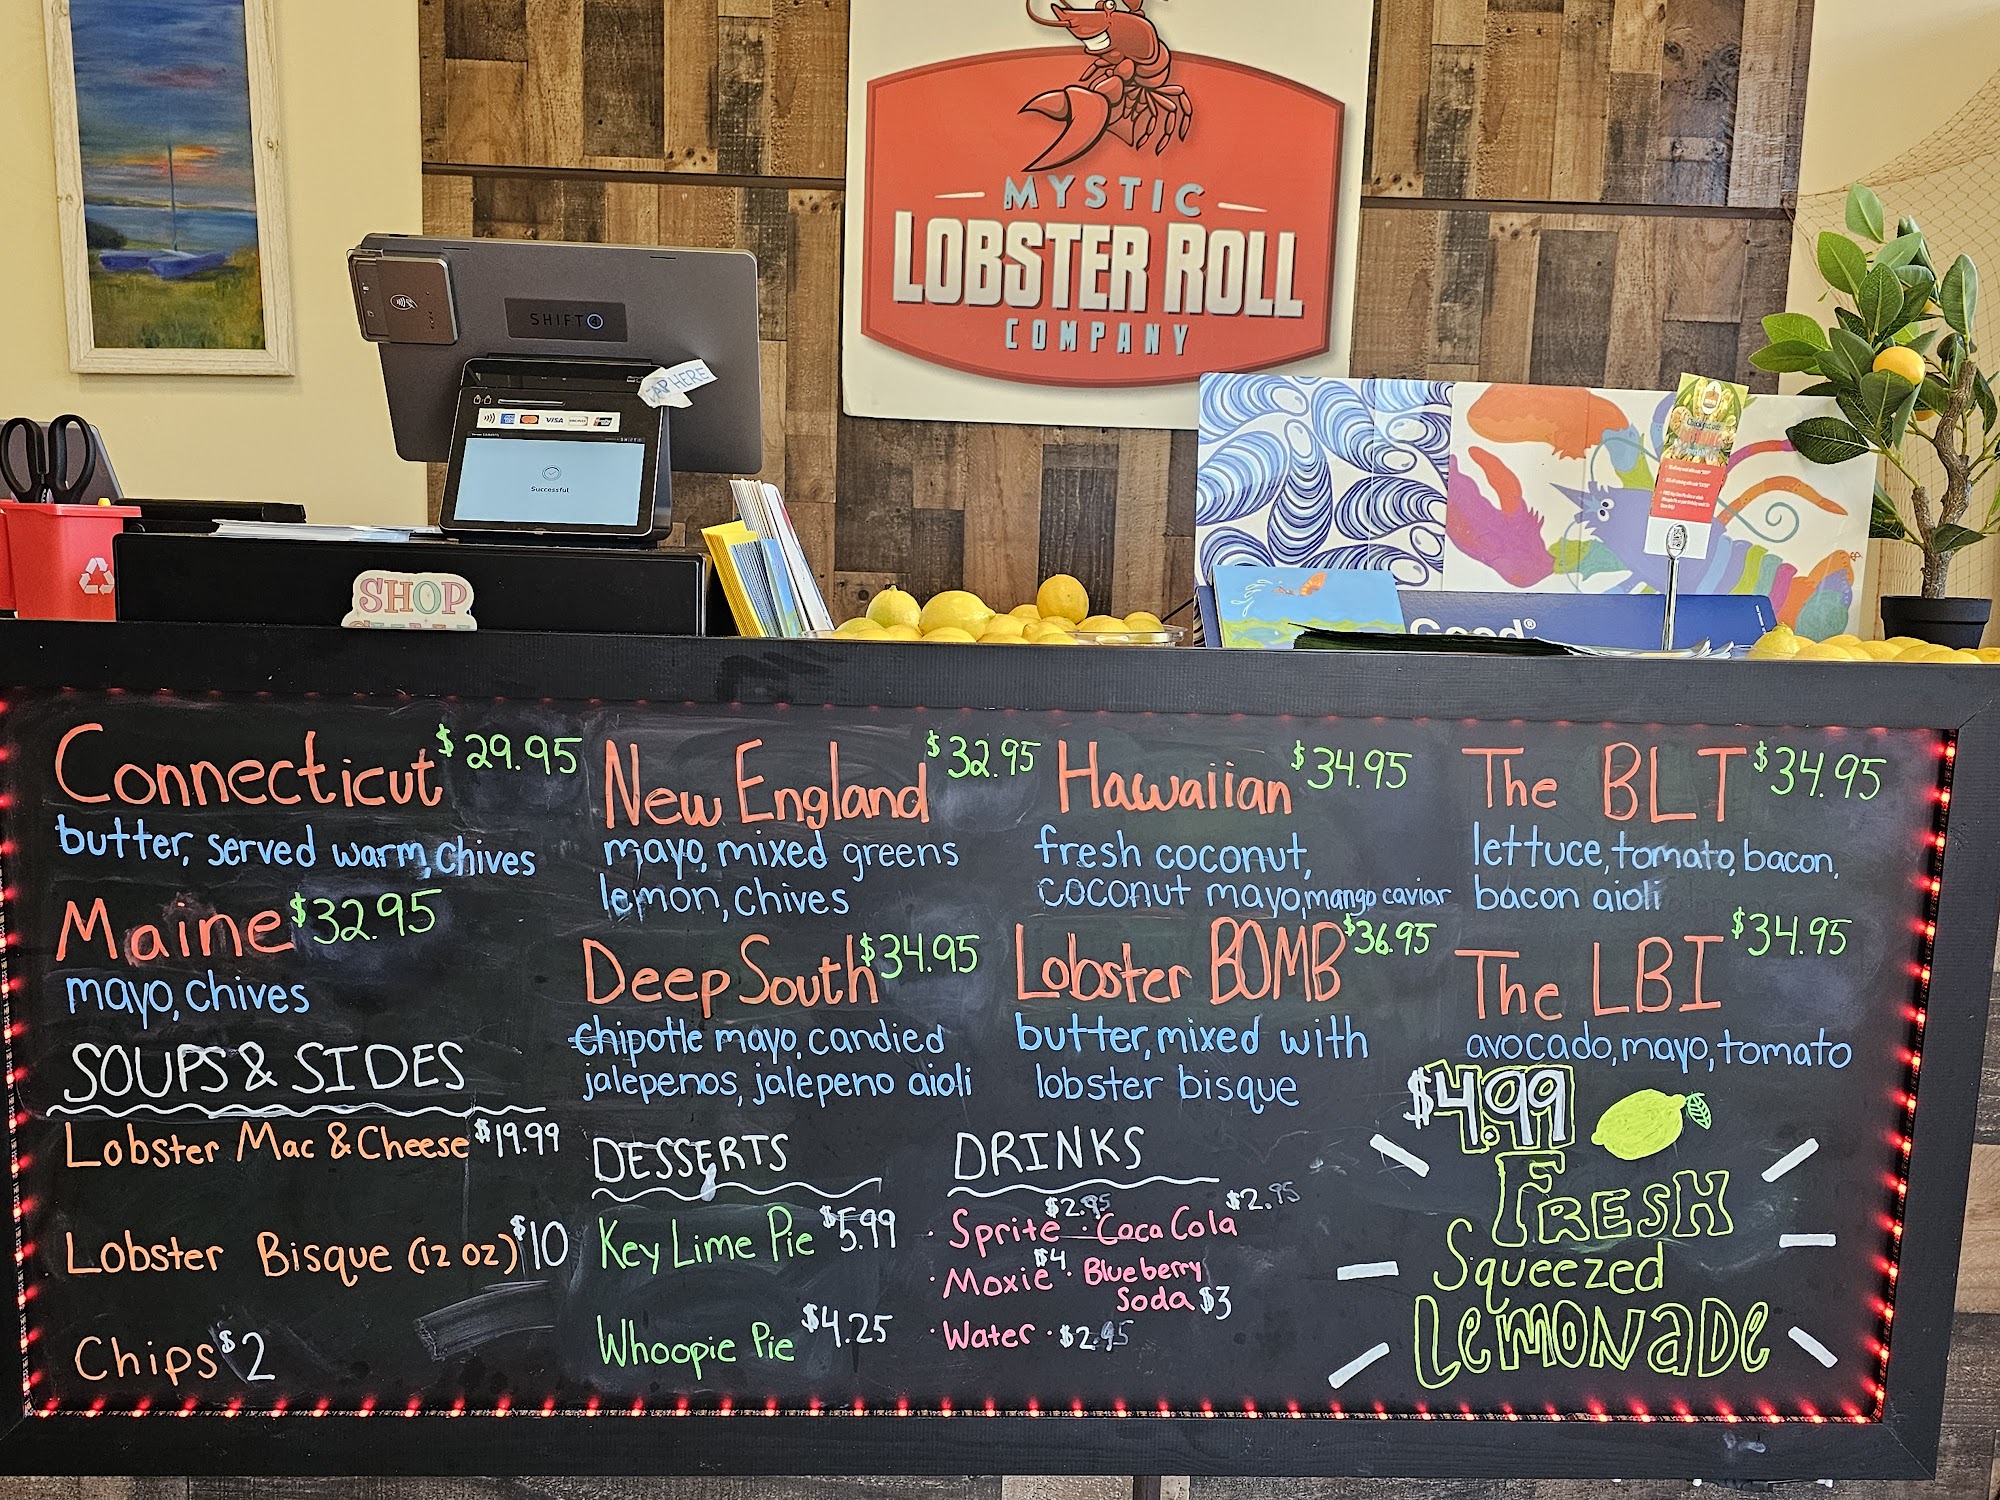 MYSTIC
LOBSTER ROLL
COMPANY
SHIFT4
TAP HERE
VISA
Successful
SHOP
Good®
Connecticut $29.95
butter, served warm, chives
Maine $32.95
mayo, chives
SOUPS & SIDES
Lobster Mac & Cheese $19.99
Lobster Bisque (12 oz) $10
Chips $2
New England $32.95
mayo, mixed greens
lemon, chives
Deep South $34.95
chipotle mayo, candied
jalepenos, jalepeno aioli
DESSERTS
Key Lime Pie $5.99
Whoopie Pie $4.25
Hawaiian $34.95
fresh coconut,
coconut mayo, mango caviar
Lobster BOMB $36.95
butter, mixed with
lobster bisque
DRINKS
· Sprite $2.95 · Coca Cola $2.95
· Moxie $4 · Blueberry
Soda $3
· Water · $2.95
The BLT $34.95
lettuce, tomato, bacon,
bacon aioli
The LBI $34.95
avocado, mayo, tomato
$4.99
FRESH
Squeezed
LEMONADE